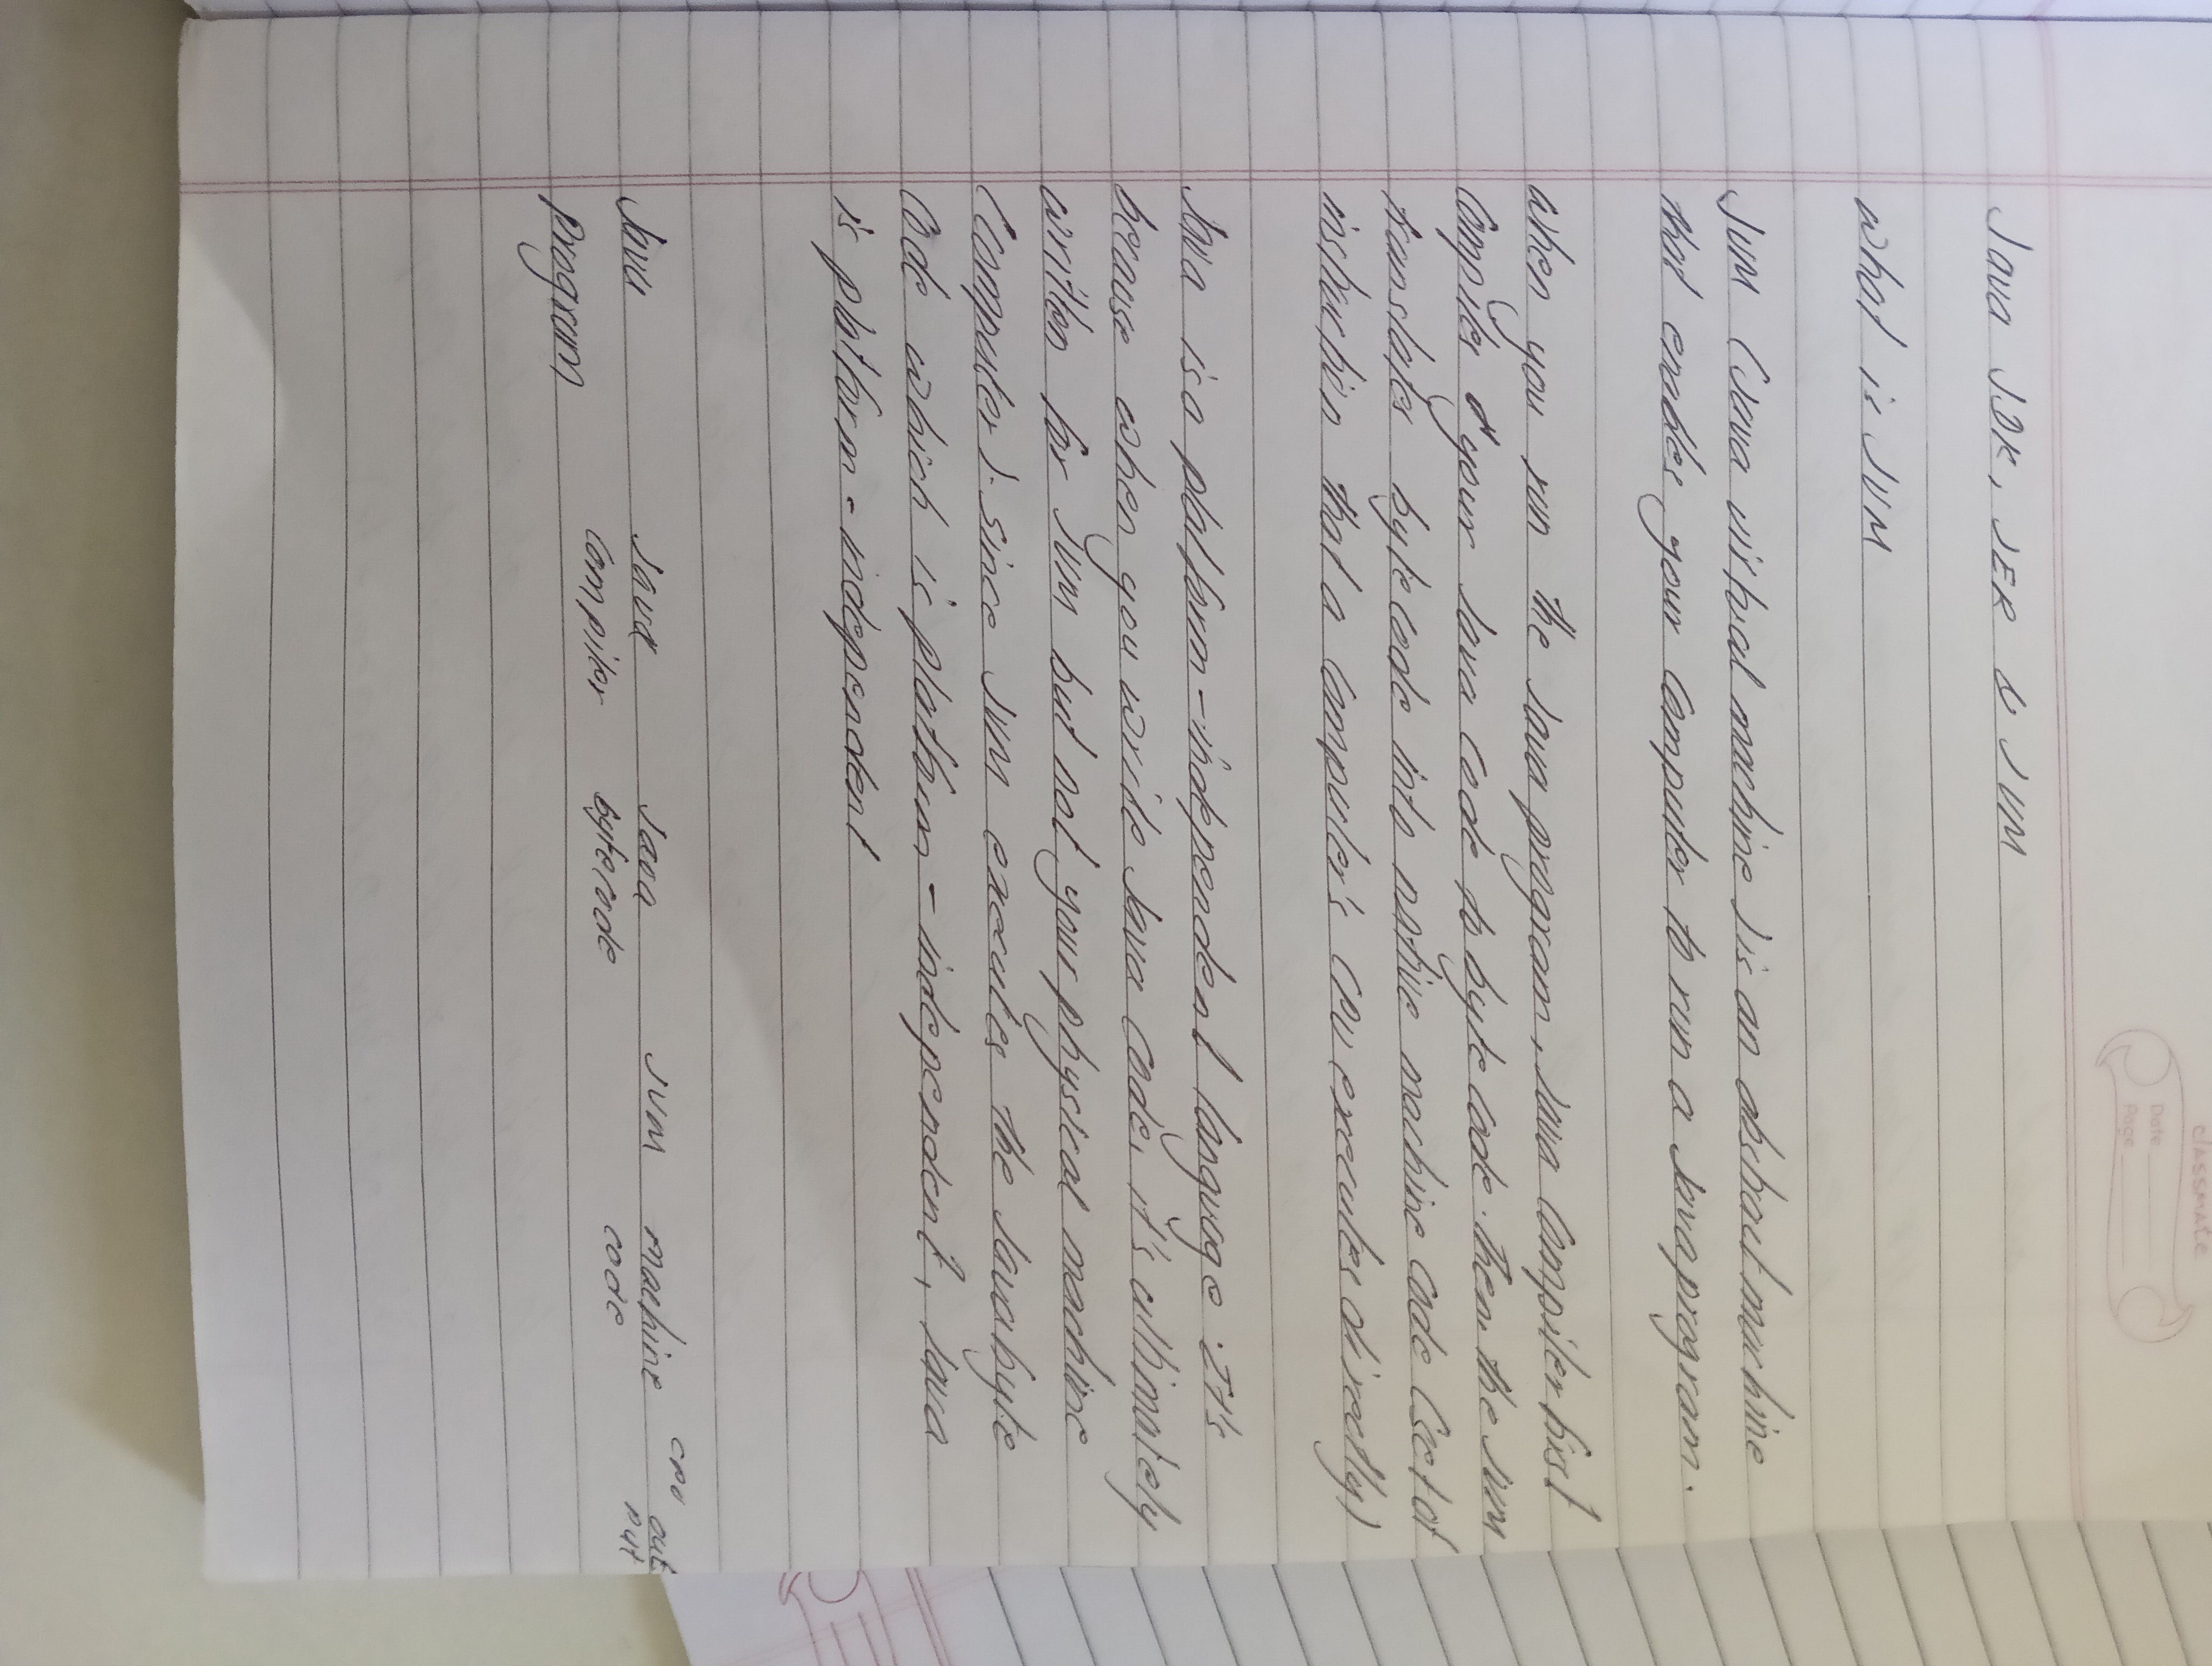 classmate
Date
Page
Java JDK, JER & JVM
what is JVM
JVM (Java virtual machine) is an abstract machine
that enables your computer to run a Java program.
when you run the Java program, Java compiler first
compiles your Java code to bytecode. then the JVM
translates bytecode into native machine code (set of
instruction that a computer's CPU executes directly)
Java is a platform-independent language. It's
because when you write Java code, it's ultimately
written for JVM but not your physical machine
(computer). Since JVM executes the Javabyte
Code which is platform-independent, Java
is platform-independent
Java Java Java JVM machine CPU out
program compiler bytecode code put